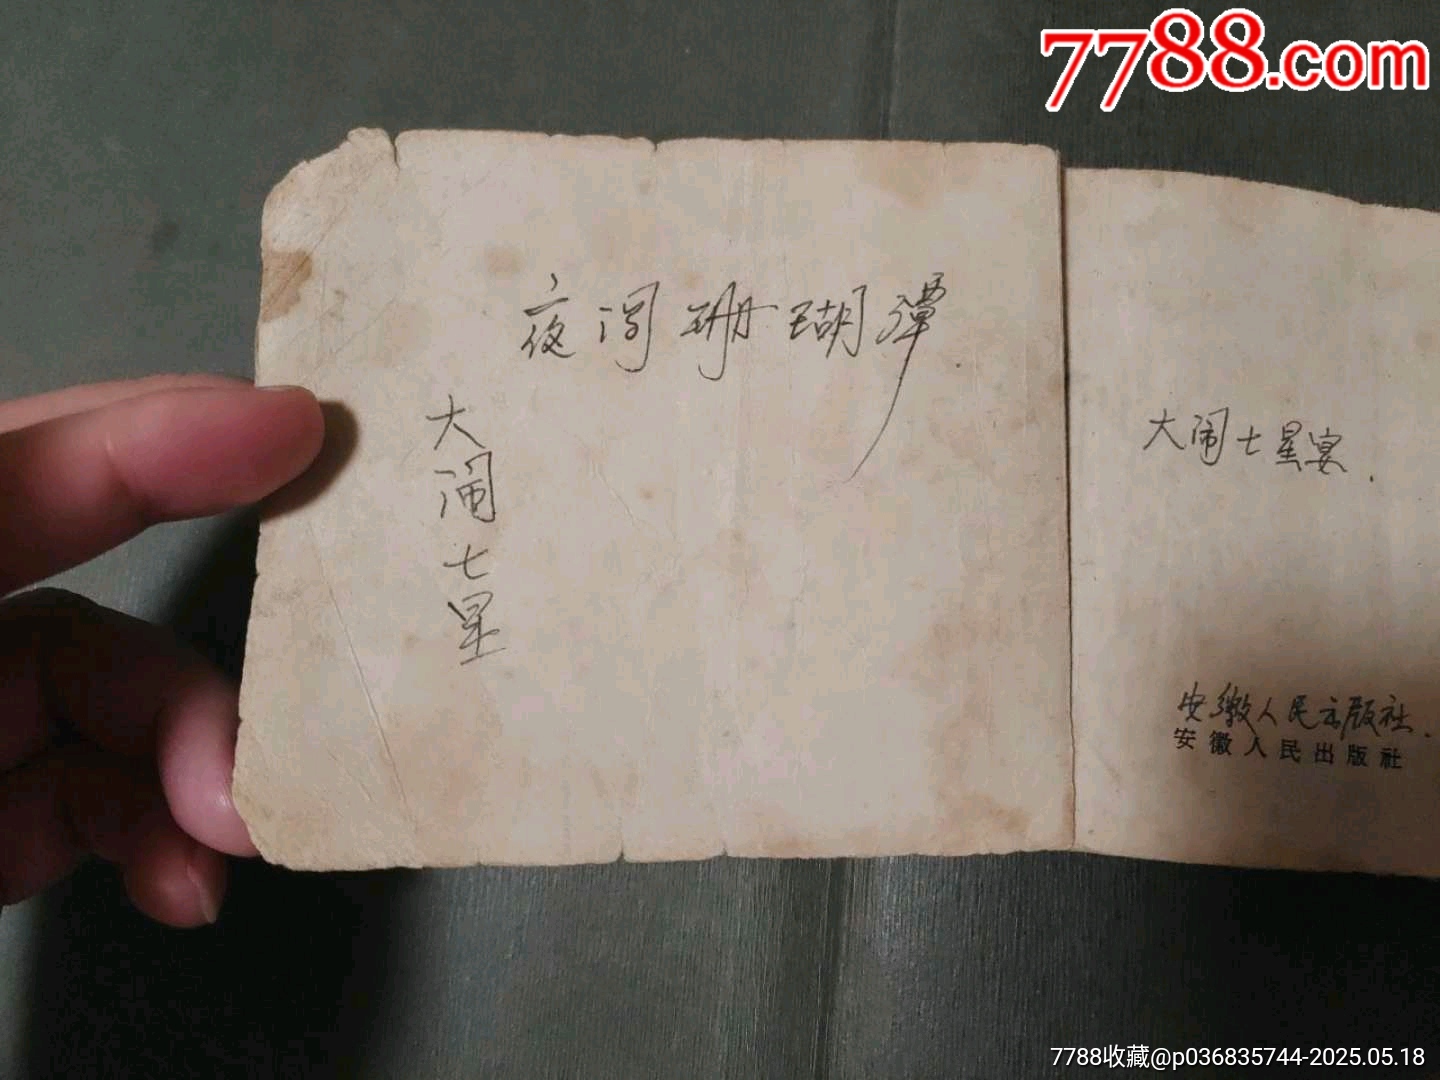 7788.com
夜闯珊瑚潭
大闹七星
大闹七星宴.
安徽人民出版社.
安徽人民出版社
7788收藏@p036835744-2025.05.18